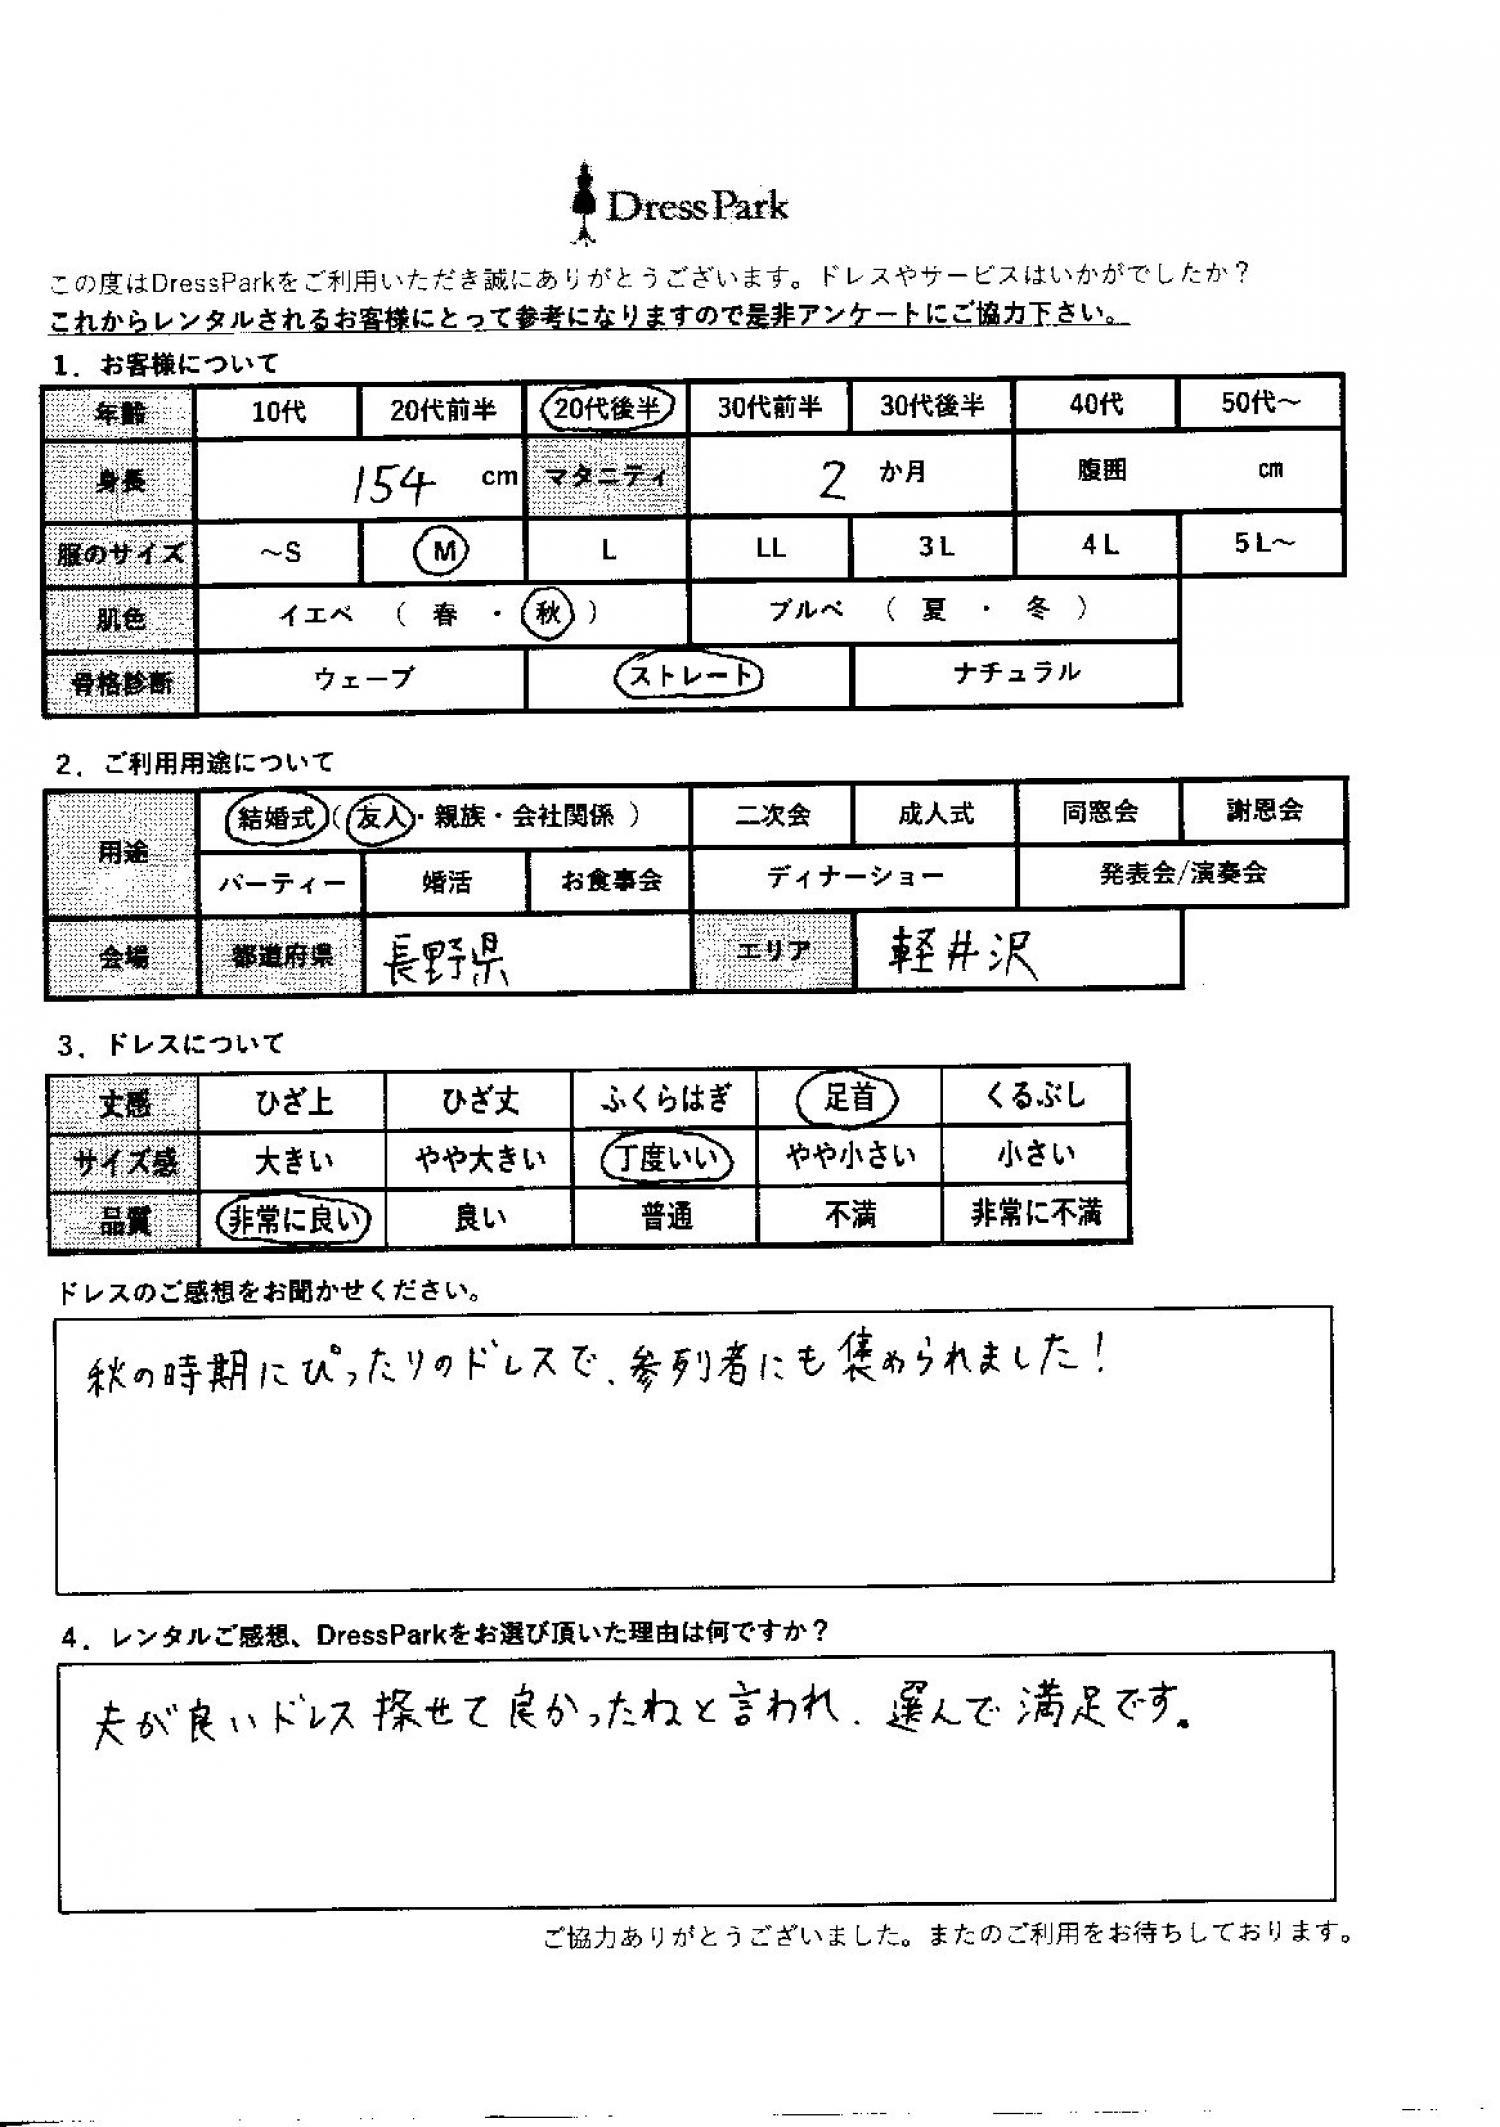 DressPark
この度はDressParkをご利用いただき誠にありがとうございます。ドレスやサービスはいかがでしたか？
これからレンタルされるお客様にとって参考になりますので是非アンケートにご協力下さい。
1．お客様について
年齢 10代 20代前半 20代後半 30代前半 30代後半 40代 50代～
身長 154 cm マタニティ 2 か月 腹囲 cm
服のサイズ ～S M L LL 3L 4L 5L～
肌色 イエベ （ 春 ・ 秋 ） ブルベ （ 夏 ・ 冬 ）
骨格診断 ウェーブ ストレート ナチュラル
2．ご利用用途について
用途 結婚式（ 友人・親族・会社関係 ） 二次会 成人式 同窓会 謝恩会
パーティー 婚活 お食事会 ディナーショー 発表会/演奏会
会場 都道府県 長野県 エリア 軽井沢
3．ドレスについて
丈感 ひざ上 ひざ丈 ふくらはぎ 足首 くるぶし
サイズ感 大きい やや大きい 丁度いい やや小さい 小さい
品質 非常に良い 良い 普通 不満 非常に不満
ドレスのご感想をお聞かせください。
秋の時期にぴったりのドレスで、参列者にも められました！
4．レンタルご感想、DressParkをお選び頂いた理由は何ですか？
夫が良いドレス探せて良かったねと言われ、選んで満足です。
ご協力ありがとうございました。またのご利用をお待ちしております。